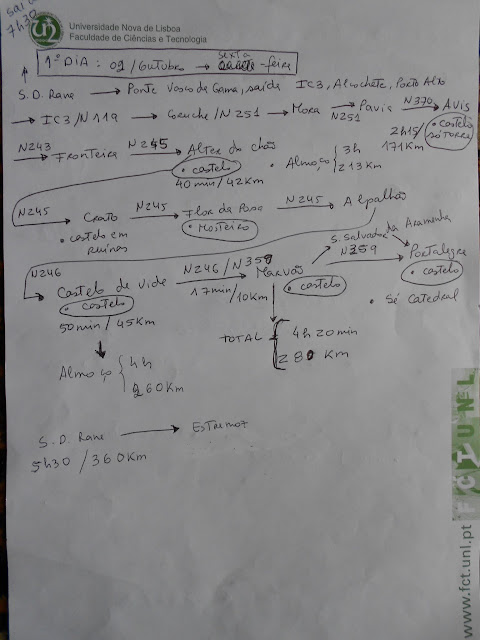 saída
7h30
Universidade Nova de Lisboa
Faculdade de Ciências e Tecnologia
1º DIA : 02/Outubro → sexta-feira
S. D. Rana → Ponte Vasco da Gama, saída IC3, Alcochete, Porto Alto
→ IC3/N119 → Coruche/N251 → Mora → N251 Pavia → N370 Avis
• castelo
só torre
2h15/
171Km
N243 → Fronteira → N245 Alter do chão
• castelo
40min/42Km
• Almoço { 3h
213Km
N245 → Crato → N245 Flor da Rosa → N245 Alpalhão
• castelo em
ruínas
• Mosteiro
N246 → Castelo de Vide → N246/N359 Marvão → S. Salvador da Aramenha
17min/10Km
N359 → Portalegre
• castelo
• castelo
• castelo
• Sé Catedral
50min/45Km
TOTAL { 4h20min
280 Km
Almoço { 4h
260Km
S. D. Rana → Estremoz
5h30/360Km
FCTUNL
www.fct.unl.pt